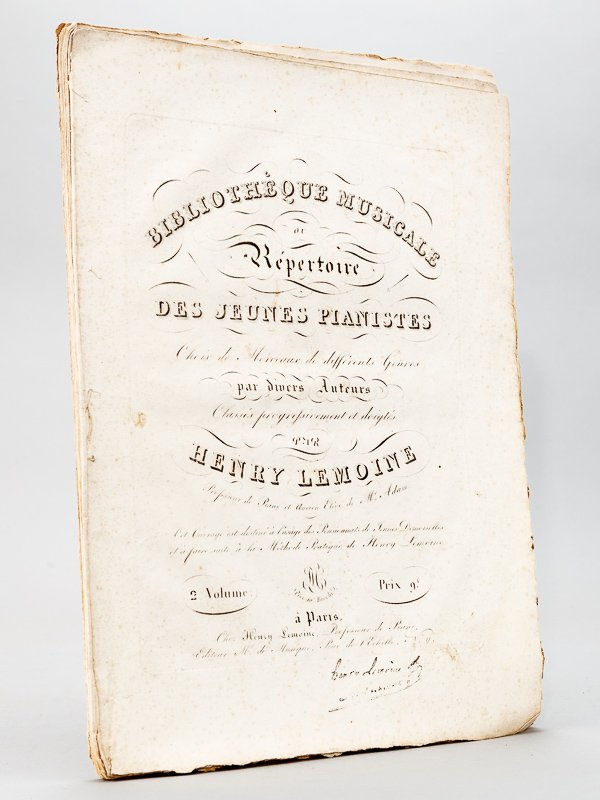 BIBLIOTHÈQUE MUSICALE
ou
Répertoire
DES JEUNES PIANISTES
Choix de Morceaux de différents Genres
par divers Auteurs
Classés progressivement et doigtés
PAR
HENRY LEMOINE
Professeur de Piano et Ancien Elève de Mr. Adam
Cet Ouvrage est destiné à l'usage des Pensionnats de Jeunes Demoiselles
et à faire suite à la Méthode Pratique de Henry Lemoine
2 Volume.
Prix 9f
à Paris,
Chez Henry Lemoine, Professeur de Piano,
Editeur Md. de Musique, Rue de l'Echelle, No. 9.
henry Lemoine